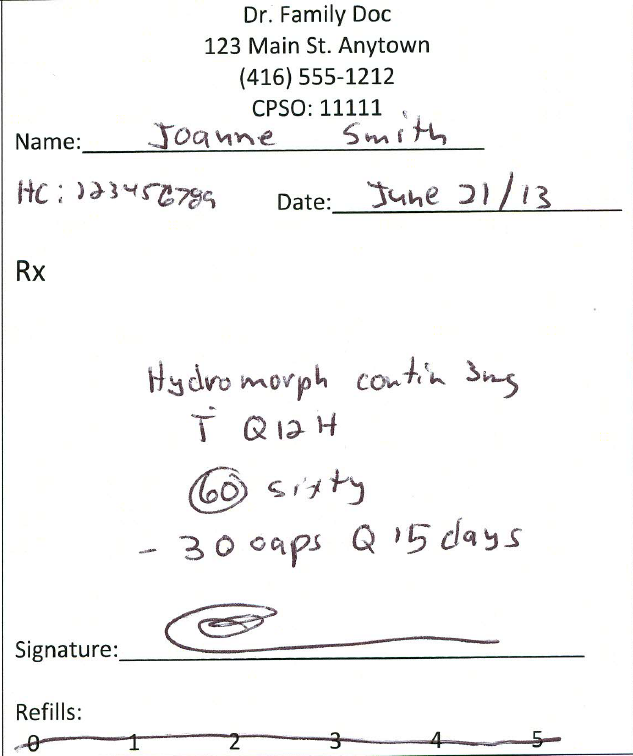 Dr. Family Doc
123 Main St. Anytown
(416) 555-1212
CPSO: 11111
Name: Joanne Smith
HC: 123456789 Date: June 21/13
Rx
Hydromorph contin 3mg
T Q12H
60 sixty
- 30 caps Q 15 days
Signature:
Refills:
0 1 2 3 4 5